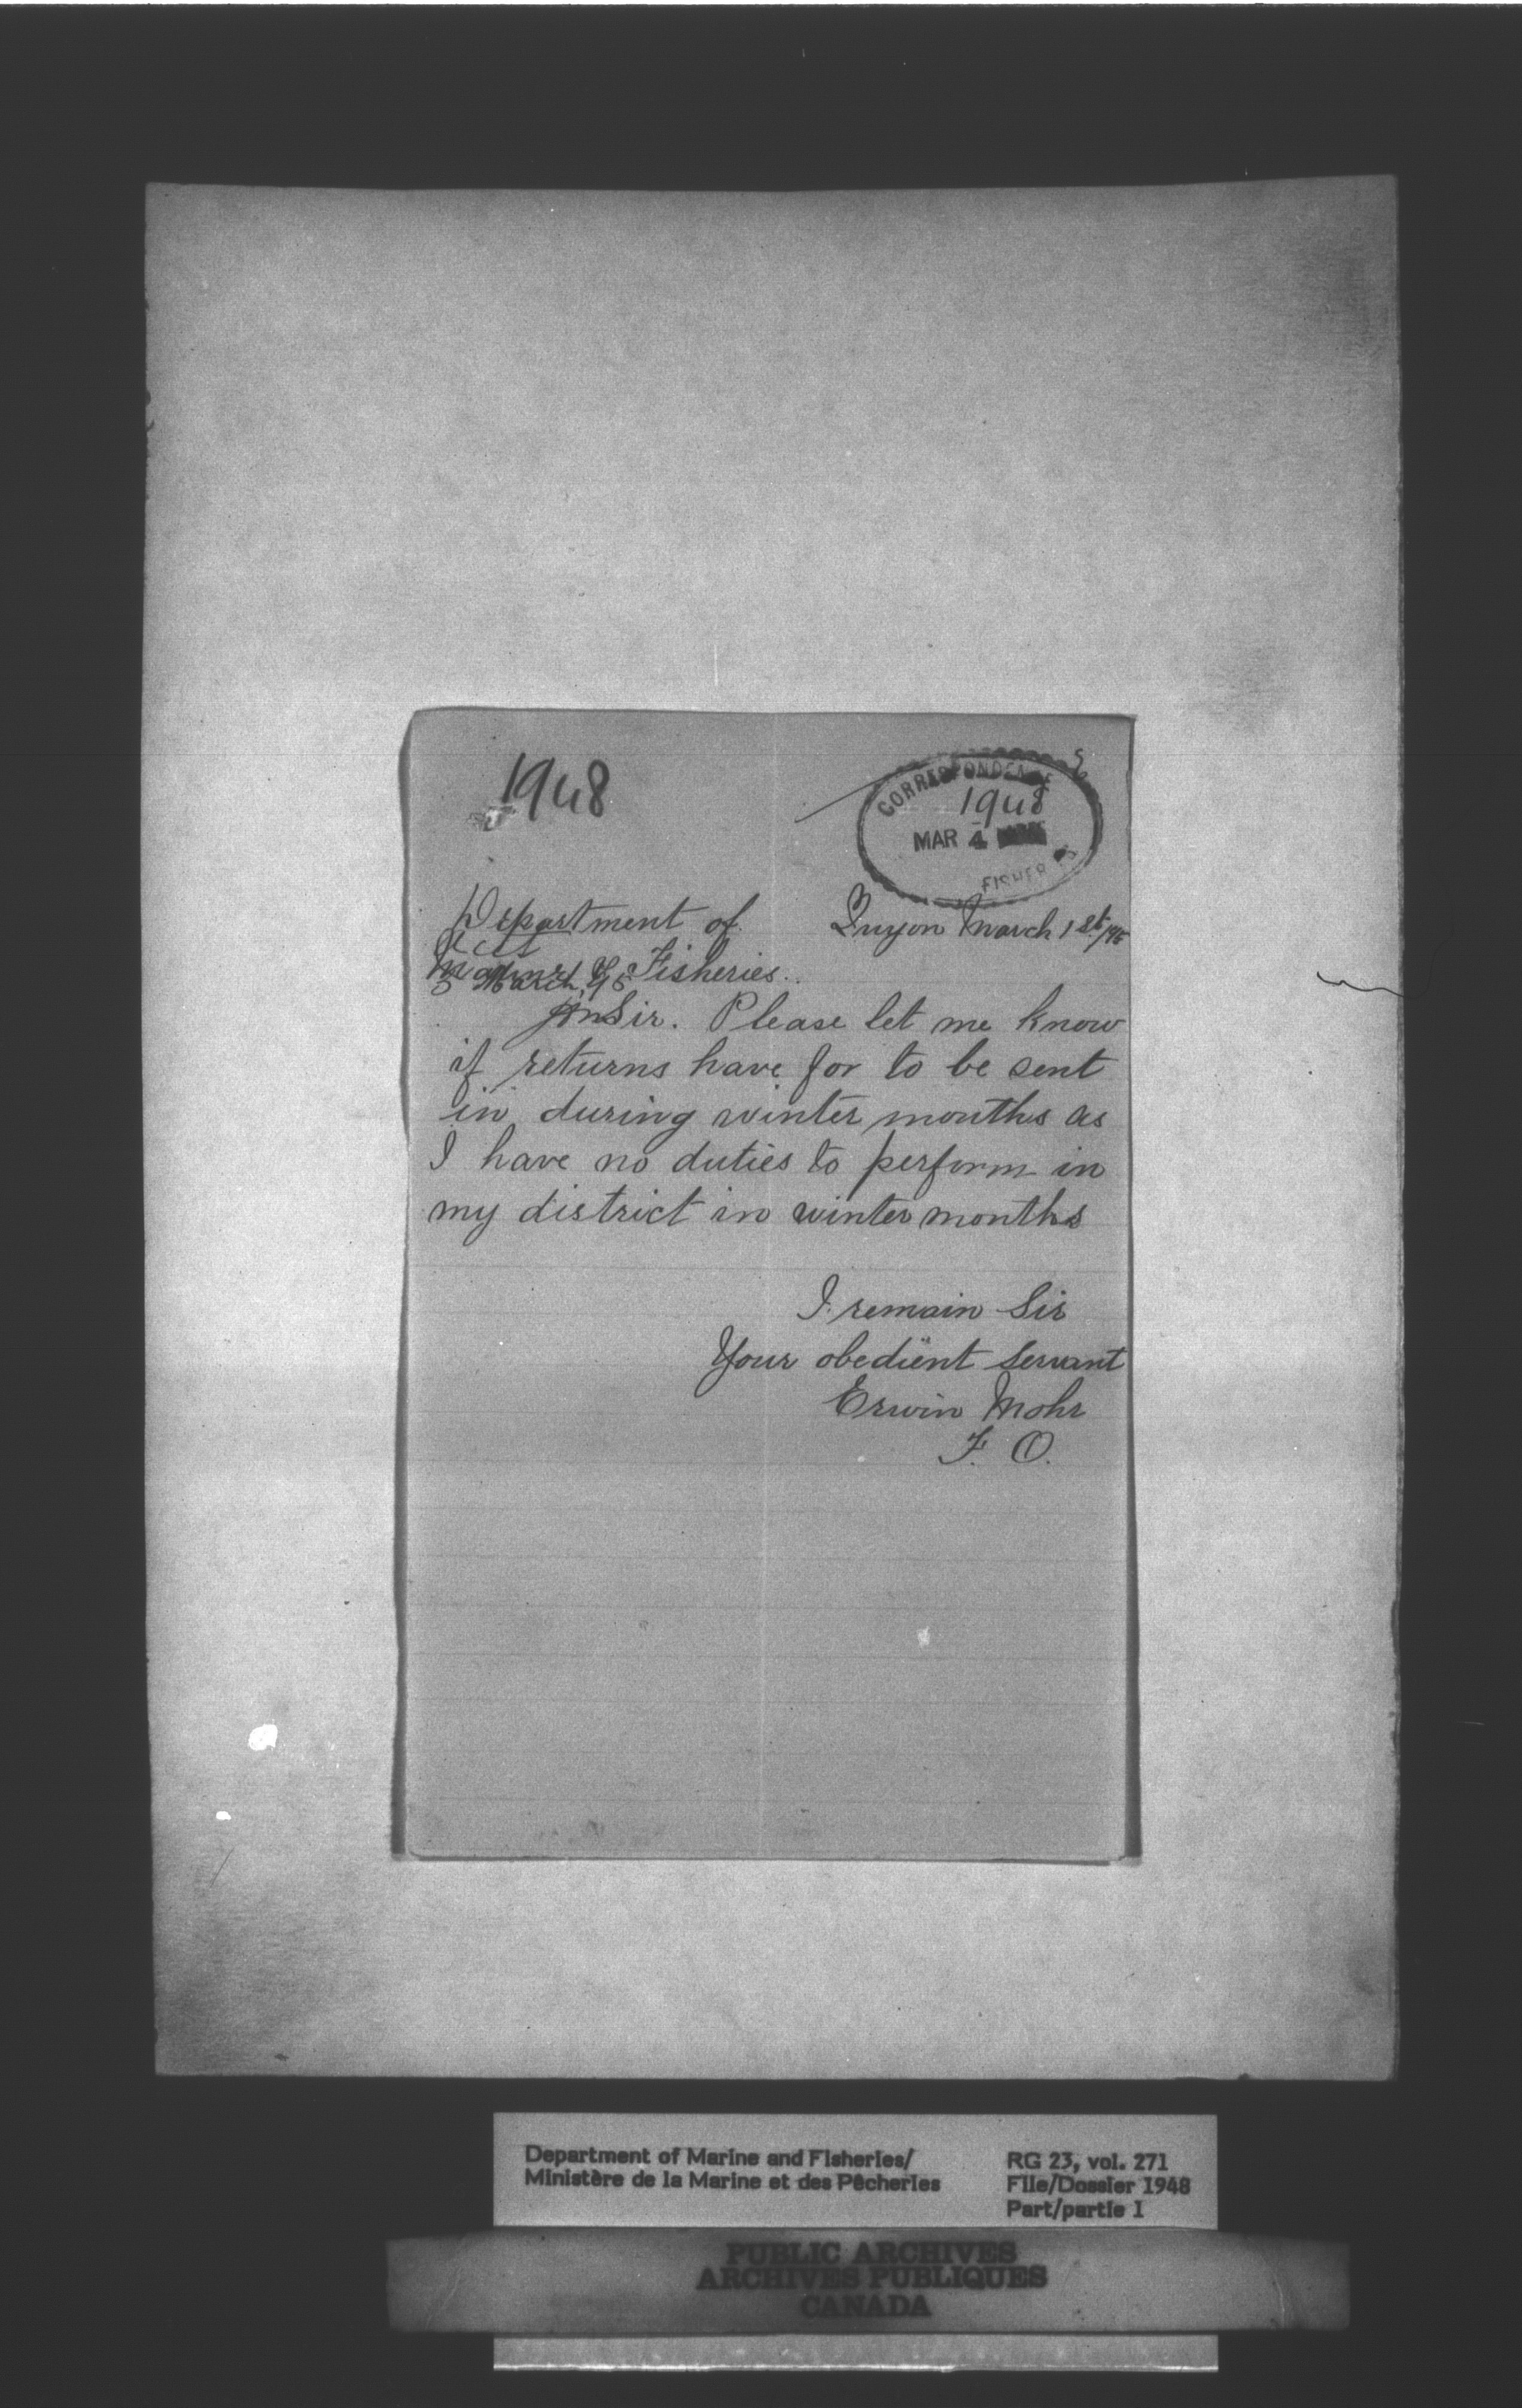 1948
CORRESPONDENCE
1948
MAR 4
FISHERIES
Department of Quyon March 1st/95
Marine & Fisheries.
5 March, 95
Sir. Please let me know
if returns have for to be sent
in during winter months as
I have no duties to perform in
my district in winter months
I remain Sir
Your obedient servant
Erwin Mohr
F. O.
Department of Marine and Fisheries/
Ministère de la Marine et des Pêcheries
RG 23, vol. 271
File/Dossier 1948
Part/partie 1
PUBLIC ARCHIVES
ARCHIVES PUBLIQUES
CANADA